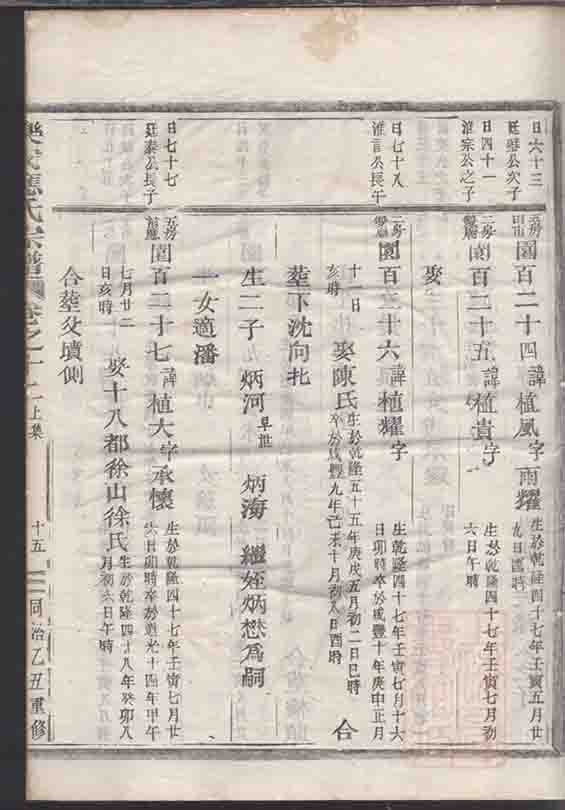 日六十三
廷聽公次子
五房
園百二十四諱植風字雨耀
生於乾隆四十七年壬寅五月廿
九日酉時
日四十一
淮宗公之子
二房
園百二十五諱植貴字
生於乾隆四十七年壬寅七月初
六日午時
娶
日七十八
淮言公長子
二房
園百二十六諱植耀字
生乾隆四十七年壬寅七月十六
日卯時卒於咸豐十年庚申正月
十一日
亥時
娶陳氏
生於乾隆五十五年庚戌五月初二日巳時
卒於咸豐九年己未十月初八日酉時
合
塟下沈向北
生二子
炳河
早世
炳海
繼姪炳懋為嗣
一女適潘
日七十七
廷泰公長子
五房
園百二十七諱植大字承懷
生於乾隆四十七年壬寅七月廿
六日卯時卒於道光十四年甲午
七月廿二
日亥時
娶十八都徐山徐氏
生於乾隆四十八年癸卯八
月初六日午時
合塟父墳側
應氏宗譜
卷之十一上集
十五
同治乙丑重修